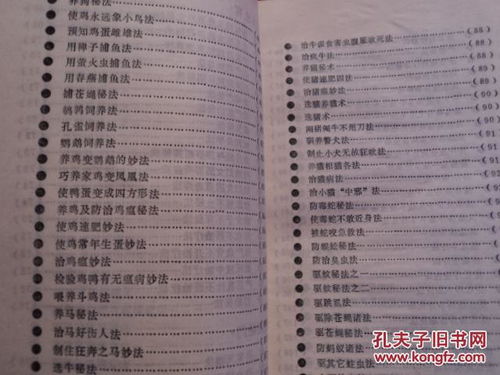 养狗秘法
使鸡永远象小鸟法
预知鸡蛋雌雄法
用樟子捕鱼法
用萤火虫捕鱼法
用春燕捕鱼法
捕苍蝇秘法
鹌鹑饲养法
孔雀饲养法
鹦鹉饲养法
养鸡变鹦鹉的妙法
巧养家鸡变凤凰法
使鸭蛋变成四方形法
养鸡及防治鸡瘟秘法
使鸡速肥妙法
使鸡常年生蛋妙法
治鸡瘟妙法
检验鸡鸭有无瘟病妙法
喂养斗鸡法
养马秘法
治马好伤人法
制住狂奔之马妙法
选牛秘法
治牛误食害虫腹胀欲死法 (88)
治疯牛法 (88)
养猫秘术 (89)
使猪速肥四法 (89)
治猪瘟妙法 (90)
选猫养猫术 (90)
选猪术 (90)
阉猪阉牛不用刀法 (91
驯养警犬法 (91
制止小犬无故狂吠法 (91
养猫相猫各法 (91
治猫病法 (92
治小猫“中邪”法 (92
防毒蛇秘法 (92
使毒蛇不敢近身法 (9
被蛇咬急救法 (9
防蜈蚣秘法 (9
防治臭虫法
驱蚊秘法之一
驱蚊秘法之二
驱跳虱法
驱除苍蝇诸法
驱苍蝇秘法
防蚂蚁诸法
驱其它蛀虫法
孔夫子旧书网
www.kongfz.com